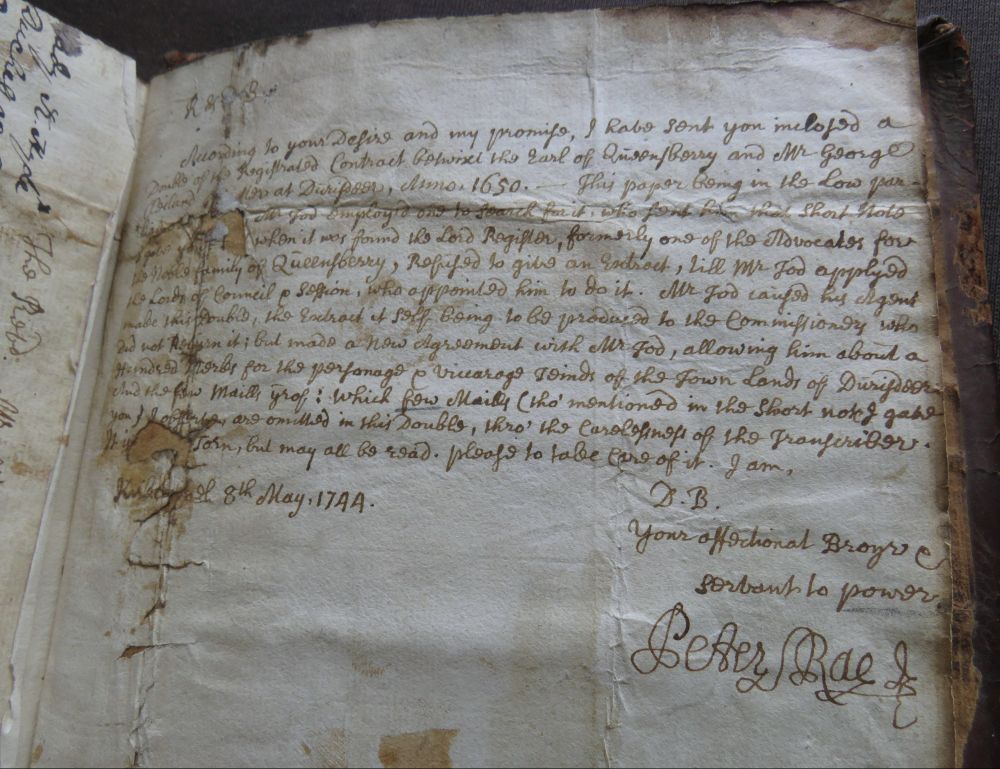 R & D. B.
According to your Desire and my promise, I have sent you inclosed a
Double of the Registrated Contract betwixt the Earl of Queensberry and Mr George
at Durisdeer, Anno. 1650. — This paper being in the Low par-
Mr Tod employ'd one to search for it, who sent him that short Note
when it was found the Lord Register, formerly one of the Advocates for
the Noble family of Queensberry, Refused to give an Extract, till Mr Tod applyed
the Lords of Council & Session, who appointed him to do it. Mr Tod caused his Agent
make this double, the Extract it self being to be produced to the Commissioners who
did not Return it; but made a New Agreement with Mr Tod, allowing him about a
Hundred Merks for the personage & viccarage Teinds of the Town Lands of Durisdeer
And the few Maills yrof: Which few Maills (tho' mentioned in the short note I gave
you) are omitted in this Double, thro' the Carelessness of the Transcriber.
Torn, but may all be read. please to take Care of it. I am,
8th May, 1744.
D. B.
Your affectionat Broyr &
servant to power
Peter Rae
The Revd.